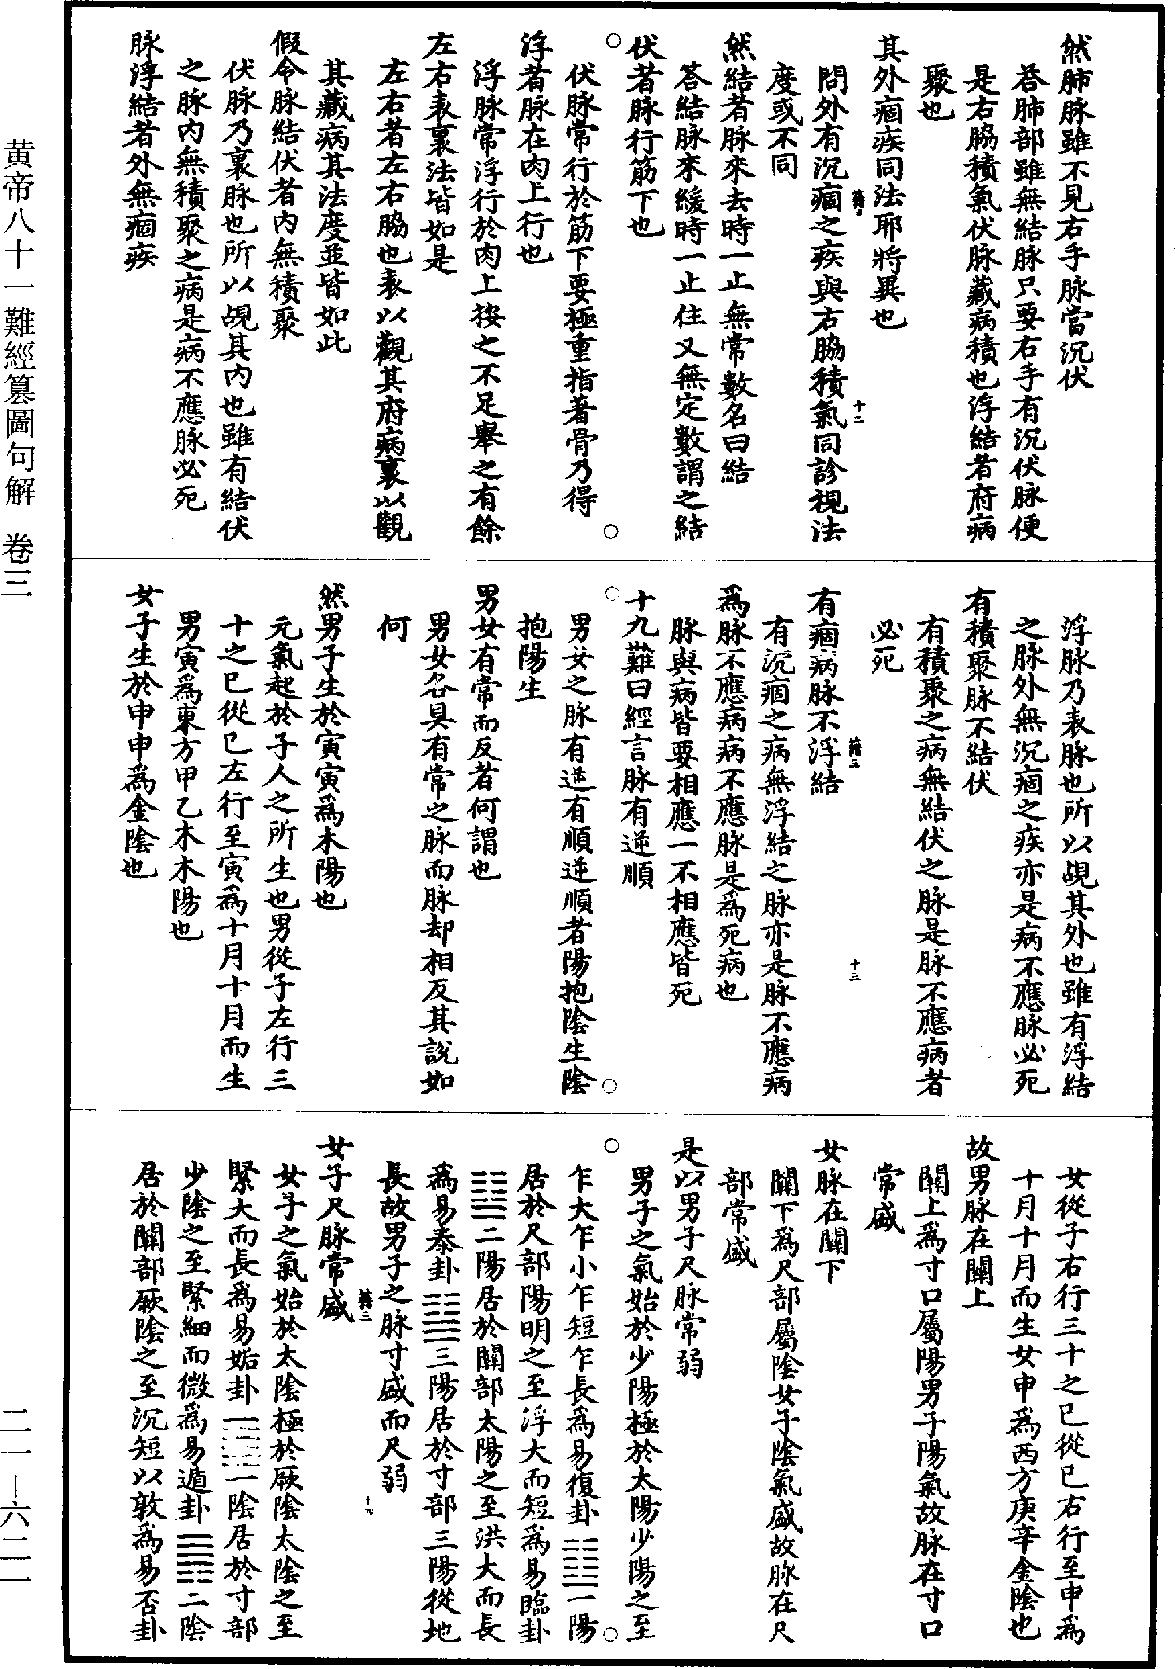 然肺脉雖不見右手脉當沉伏
答肺部雖無結脉只要右手有沉伏脉便
是右脇積氣伏脉藏病積也浮結者府病
聚也
其外痼疾同法耶將異也
問外有沉痼之疾與右脇積氣同診視法
度或不同
然結者脉來去時一止無常數名曰結
答結脉來緩時一止住又無定數謂之結
伏者脉行筋下也
伏脉常行於筋下要極重指著骨乃得
浮者脉在肉上行也
浮脉常浮行於肉上按之不足舉之有餘
左右表裏法皆如是
左右者左右脇也表以觀其府病裏以觀
其藏病其法度並皆如此
假令脉結伏者內無積聚
伏脉乃裏脉也所以覘其內也雖有結伏
之脉內無積聚之病是病不應脉必死
脉浮結者外無痼疾
浮脉乃表脉也所以覘其外也雖有浮結
之脉外無沉痼之疾亦是病不應脉必死
有積聚脉不結伏
有積聚之病無結伏之脉是脉不應病者
必死
有痼病脉不浮結
有沉痼之病無浮結之脉亦是脉不應病
爲脉不應病病不應脉是爲死病也
脉與病皆要相應一不相應皆死
十九難曰經言脉有逆順
男女之脉有逆有順逆順者陽抱陰生陰
抱陽生
男女有常而反者何謂也
男女各具有常之脉而脉却相反其說如
何
然男子生於寅寅爲木陽也
元氣起於子人之所生也男從子左行三
十之巳從巳左行至寅爲十月十月而生
男寅爲東方甲乙木木陽也
女子生於申申爲金陰也
女從子右行三十之巳從巳右行至申爲
十月十月而生女申爲西方庚辛金陰也
故男脉在關上
關上爲寸口屬陽男子陽氣故脉在寸口
常盛
女脉在關下
關下爲尺部屬陰女子陰氣盛故脉在尺
部常盛
是以男子尺脉常弱
男子之氣始於少陽極於太陽少陽之至
乍大乍小乍短乍長爲易復卦䷗一陽
居於尺部陽明之至浮大而短爲易臨卦
䷒二陽居於關部太陽之至洪大而長
爲易泰卦䷊三陽居於寸部三陽從地
長故男子之脉寸盛而尺弱
女子尺脉常盛
女子之氣始於太陰極於厥陰太陰之至
緊大而長爲易姤卦䷫一陰居於寸部
少陰之至緊細而微爲易遁卦䷠二陰
居於關部厥陰之至沉短以敦爲易否卦
十二
十三
黃帝八十一難經纂圖句解 卷三
二一—六二一